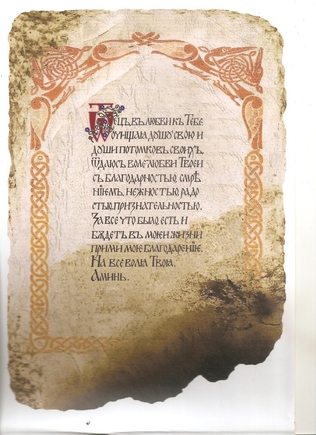 Отецъ, въ любви къ Тебе
очищаю душу свою и
души потомковъ своихъ.
Ѿдаюсь воле любви Твоей
съ благодарностью, смире
нїемъ, нежностью, радо
стью, признательностью.
За все что было, есть и
бꙋдетъ въ моей жизни
прими мое благодаренїе.
На все воля Твоя.
Аминь.